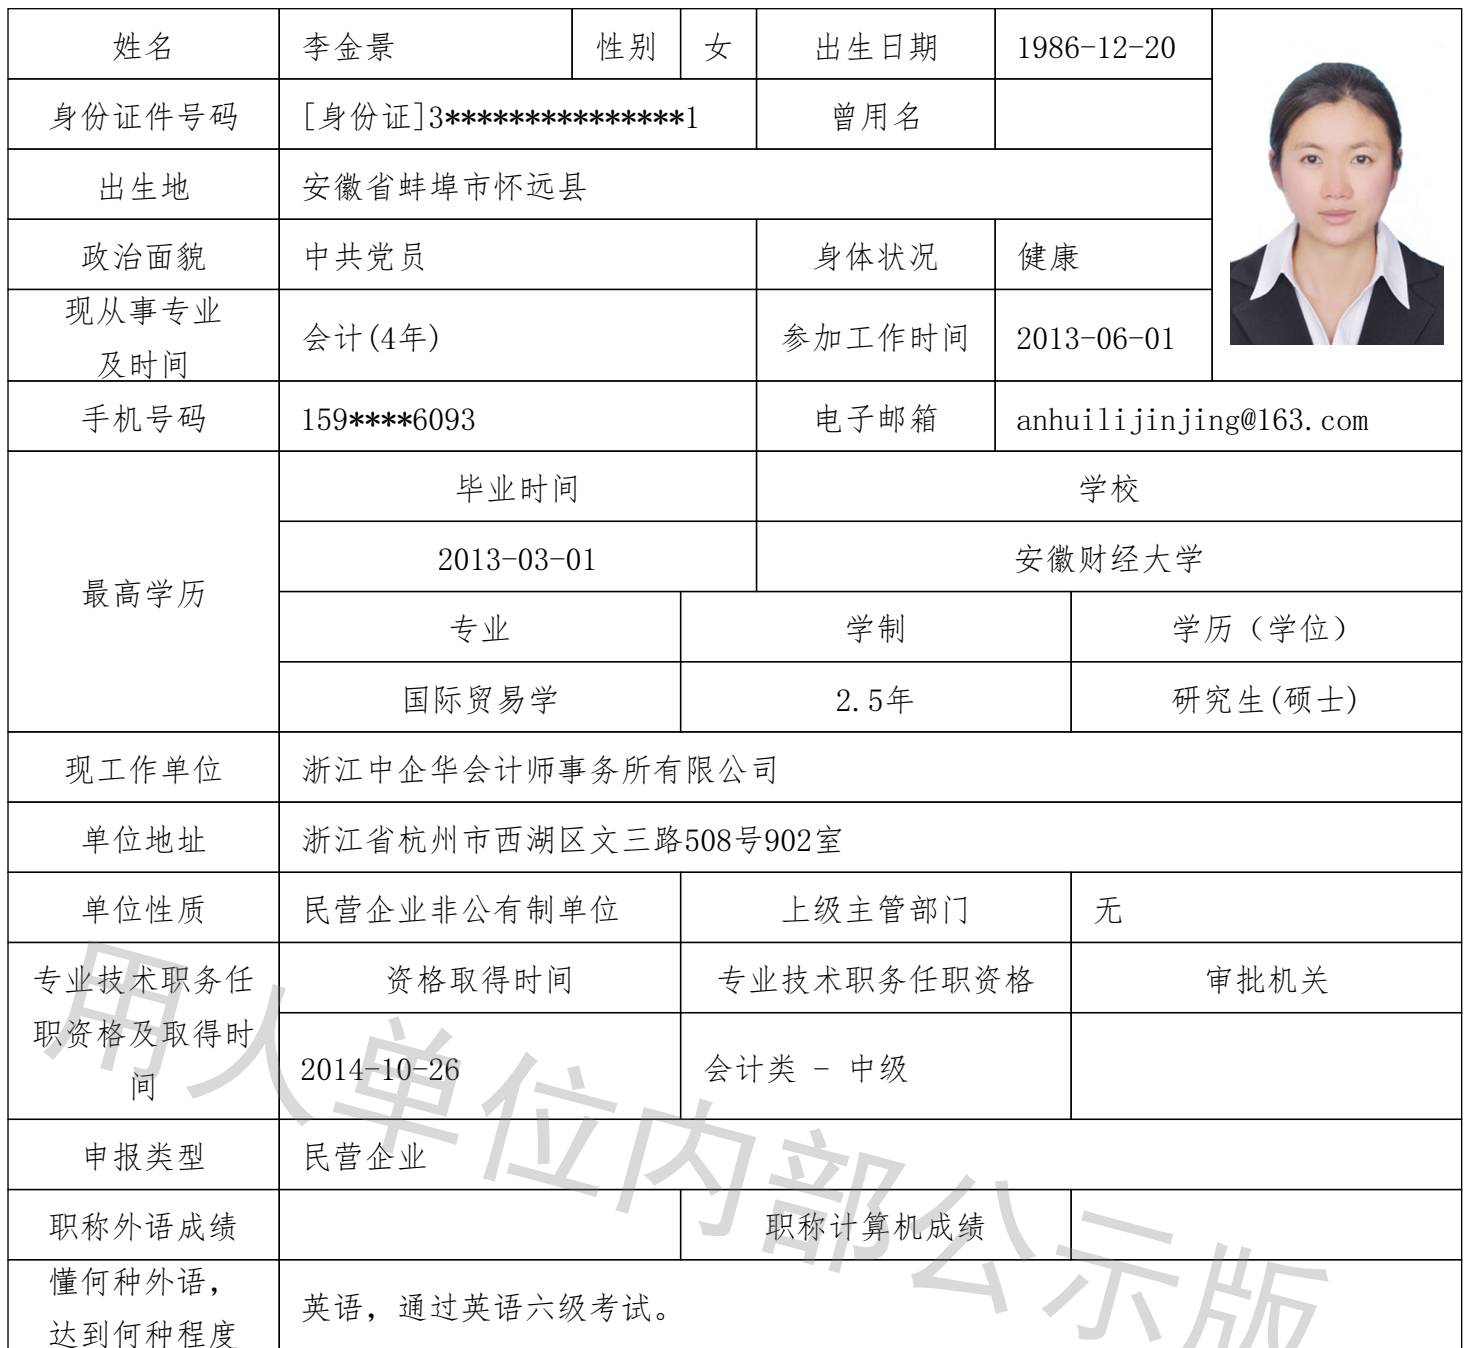 姓名 李金景 性别 女 出生日期 1986-12-20
身份证件号码 [身份证]3***************1 曾用名
出生地 安徽省蚌埠市怀远县
政治面貌 中共党员 身体状况 健康
现从事专业
及时间 会计(4年) 参加工作时间 2013-06-01
手机号码 159****6093 电子邮箱 anhuilijinjing@163.com
最高学历
毕业时间 学校
2013-03-01 安徽财经大学
专业 学制 学历（学位）
国际贸易学 2.5年 研究生(硕士)
现工作单位 浙江中企华会计师事务所有限公司
单位地址 浙江省杭州市西湖区文三路508号902室
单位性质 民营企业非公有制单位 上级主管部门 无
专业技术职务任
职资格及取得时
间
资格取得时间 专业技术职务任职资格 审批机关
2014-10-26 会计类 - 中级
申报类型 民营企业
职称外语成绩 职称计算机成绩
懂何种外语，
达到何种程度 英语，通过英语六级考试。
用人单位内部公示版